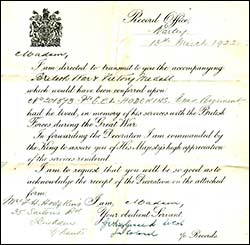 Record Office,
13th March 1922
Madam,
I am directed to transmit to you the accompanying
British War & Victory Medals
which would have been conferred upon
No 201873 Pte C.E.L. HODGKINS. Regiment
had he lived, in memory of his services with the British
Forces during the Great War.
In forwarding the Decoration I am commanded by
the King to assure you of His Majesty's high appreciation
of the services rendered
I am to request that you will be so good as to
acknowledge the receipt of the Decoration on the attached
form.
I am, Madam
Your obedient Servant
Hodgkins
35
Swindon
Wilts
i/c Records